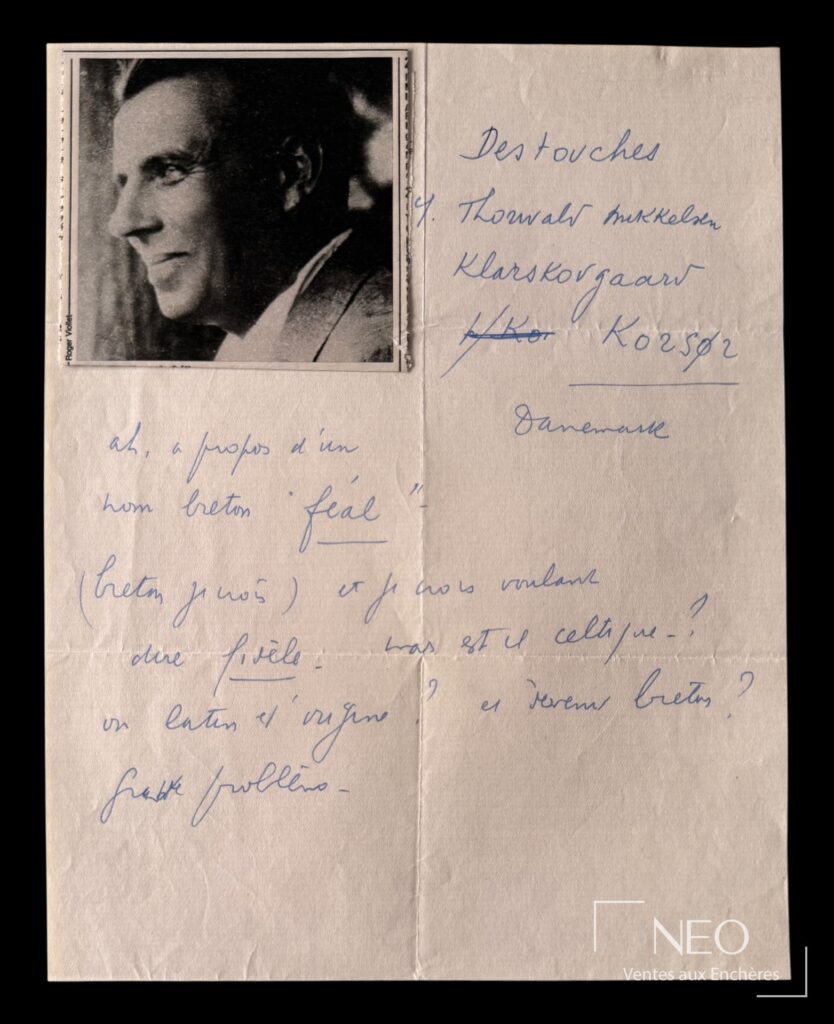 Destouches
Thorvald Mikkelsen
Klarskovgaard
Korsør
Danemark
ah, a propos d'un
nom breton "féal" -
(breton je crois) et je crois voulant
dire fidèle - mais est il celtique - ?
ou latin d'origine ? et devenu breton ?
problème -
Roger Viollet
NEO
Ventes aux Enchères